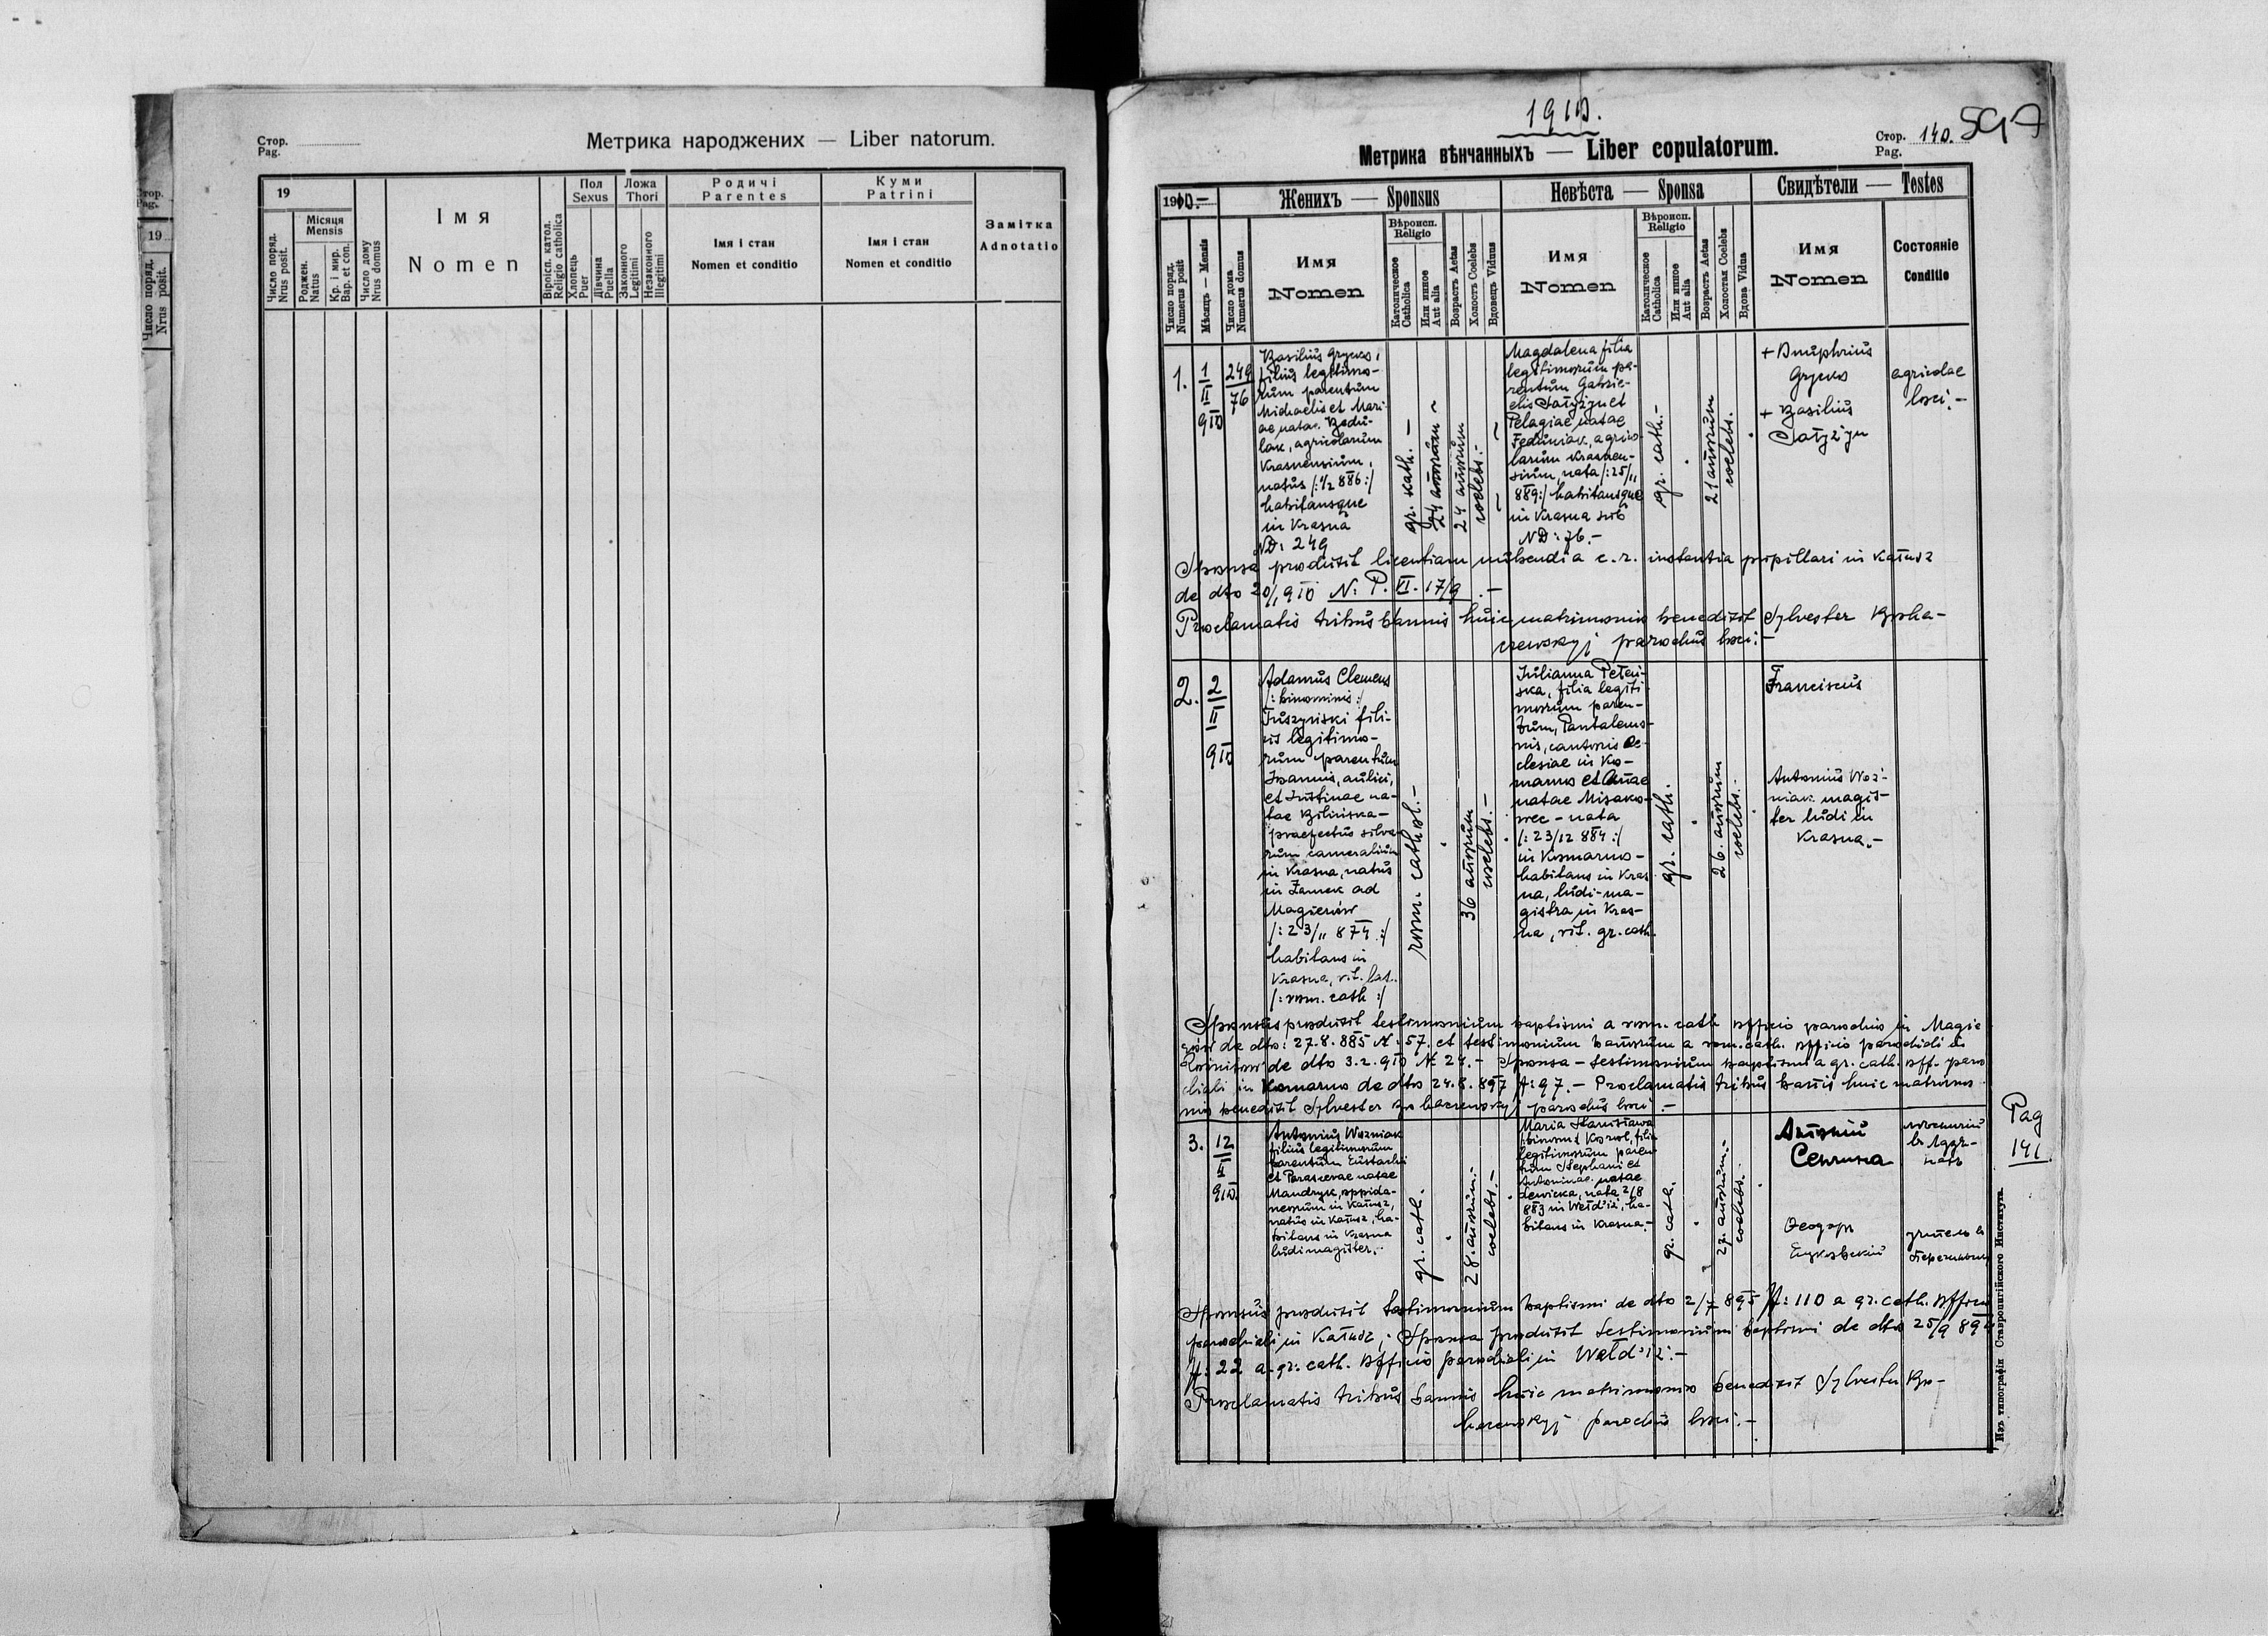 Стор.
Pag.
Метрика народжених — Liber natorum.
Стор.
Pag.
19
Число поряд.
Nrus posit.
19
Місяця
Mensis
Число поряд.
Nrus posit.
Роджен.
Natus
Кр. і мир.
Bap. et con.
Число дому
Nrus domus
Імя
Nomen
Віроісп. катол.
Religio catholica
Пол
Sexus
Хлопець
Puer
Дівчина
Puella
Ложа
Thori
Законного
Legitimi
Незаконного
Illegitimi
Родичі
Parentes
Імя і стан
Nomen et conditio
Куми
Patrini
Імя і стан
Nomen et conditio
Замітка
Adnotatio
1910.
Метрика вѣнчанныхъ — Liber copulatorum.
Стор.
Pag.
140.
597
1910.-
Женихъ — Sponsus
Невѣста — Sponsa
Свидѣтели — Testes
Число поряд.
Numerus posit
Мѣсяцъ — Mensis
Число дома
Numerus domus
Имя
Nomen
Вѣроисп.
Religio
Католическое
Catholica
Или инное
Aut alia
Возрастъ Aetas
Холостъ Coelebs
Вдовецъ Viduus
Имя
Nomen
Вѣроисп.
Religio
Католическое
Catholica
Или инное
Aut alia
Возрастъ Aetas
Холостая Coelebs
Вдова Vidua
Имя
Nomen
Состояніе
Conditio
1.
1
II
910
249
76
Basilius Grycko,
filius legitimo-
rum parentum
Michaelis et Mari-
ae natae Bedu-
lak, agricolarum
Krasnensium,
natus /:1/2 886:/
habitansque
in Krasna
ND: 249
gr. kath. -
24 annorum
24 annorum
coelebs. -
Magdalena filia
legitimorum pa-
rentum Gabrie-
elis Satyzyn et
Pelagiae natae
Feduniak, agrico-
larum Krasnen-
sium, nata /:25/11
889:/ habitansque
in Krasna sub
ND: 76.-
gr. cath. -
21 annorum
coelebs.
+ Onuphrius
Grycko
+ Basilius
Satyzyn
agricolae
loci. -
Sponsa produxit licentiam nubendi a c. r. instantia pupillari in Kałusz
de dto 20/1 910 N: P. VI. 17/9. -
Proclamatis tribus bannis huic matrimonio benedixit Sylvester Kocha-
czewskyj parochus loci: -
2.
2
II
910
Adamus Clemens
/: binominis :/
Tuszynski fili-
us legitimo-
rum parentum
Joannis, aulici,
et Justinae na-
tae Bilinska -
praefectus silva-
rum cameralium
in Krasna, natus
in Zamek ad
Magierów
/: 23/11 874 :/
habitans in
Krasna, rit. lat.
/: rom. cath :/
rom. cathol. -
36 annorum
coelebs. -
Julianna Peten-
ska, filia legiti-
morum paren-
tum, Pantalemo-
nis, cantoris ec-
clesiae in Ko-
marno et Annae
natae Misako-
wec - nata
/: 23/12 884 :/
in Komarno -
habitans in Kras-
na, ludi-ma-
gistra in Kras-
na, rit. gr. cath.
gr. cath.
26. annorum
coelebs.
Franciscus
Antonius Woź-
niak magis-
ter ludi in
Krasna. -
Sponsus produxit testimonium baptismi a rom. cath officio parochio in Magie
rów de dto: 27.8.885 N. 57. et testimonium bannorum a rom. cath. officio parochiali in
de dto 3.2.910 N: 24. - Sponsa - testimonium baptismi a gr. cath. off. paro
chiali in Komarno de dto 24.8.897 N: 97. - Proclamatis tribus bannis huic matrimo-
nio benedixit Sylvester Kochaczewskyj parochus loci. -
3.
12
II
910.
Antonius Wozniak
filius legitimorum
parentum Eustachii
et Parascevae natae
Mandryk, oppida-
neorum in Kałusz,
natus in Kałusz, ha-
bitans in Krasna
ludimagister. -
gr. cath.
28. annorum.
coelebs. -
Maria Stanisława
/binom:/ Kozioł, filia
legitimorum paren-
tum Stephani et
Antoninae natae
Lewicka, nata 2/8
883 in Wełdziż, ha-
bitans in Krasna. -
gr. cath.
27. annorum.
coelebs.
Антоній
Сенчина
Феодоръ
учитель в
Pag
141
Sponsus produxit testimonium baptismi de dto 2/7 895 N: 110 a gr. cath. officio
parochiali in Kałusz; Sponsa produxit testimonium baptismi de dto 25/9 89
N: 22 a gr. cath. officio parochiali in Wełdziż. -
Proclamatis tribus bannis huic matrimonio benedixit Sylvester Ko-
chaczewskyj parochus loci. -
Изъ типографіи Ставропигійского Института.